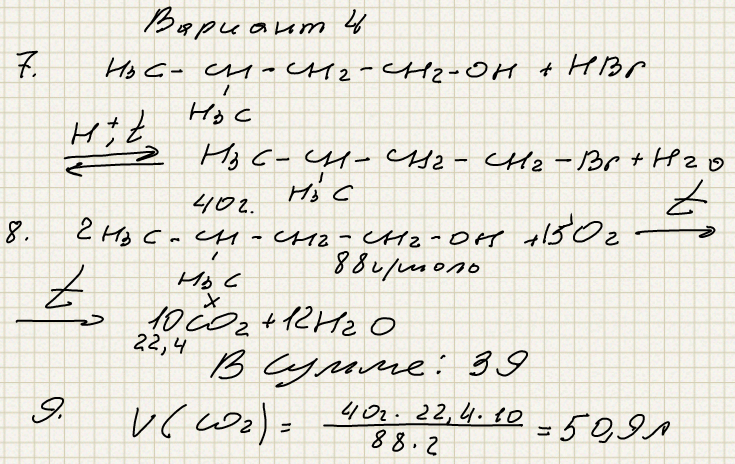 Вариант 4
7. H₃C - CH - CH₂ - CH₂ - OH + HBr
H₃C
H⁺, t ⇌ H₃C - CH - CH₂ - CH₂ - Br + H₂O
H₃C
40г.
8. 2H₃C - CH - CH₂ - CH₂ - OH + 15O₂ t →
H₃C 88г/моль
t → x
10CO₂ + 12H₂O
22,4
В сумме: 39
9. V(CO₂) = 40г. 22,4 · 10 / 88 · 2 = 50,9л